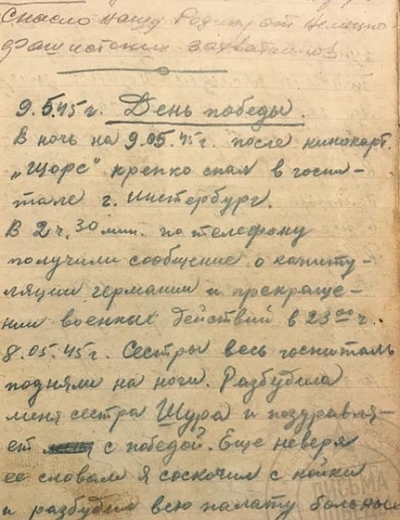 Спасло нашу Родину от немецко
фашистских захватчиков
9.5.45 г. День победы.
В ночь на 9.05.45 г. после кинокарт.
„Щорс" крепко спал в госпи-
тале г. Инстербург.
В 2 ч. 30 мин. по телефону
получили сообщение о капиту-
ляции германии и прекраще-
нии военных действий в 23 00 ч.
8.05.45 г. Сестры весь госпиталь
подняли на ноги. Разбудила
меня сестра Шура и поздравля-
ет с победой. Еще неверя
ее словам я соскочил с койки
и разбудил всю палату больных
ПИСЬМА